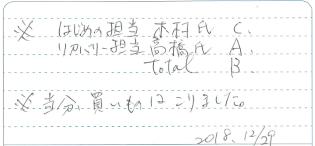 ※ はじめの担当 木村氏 C.
リカバリー担当 高橋氏 A.
Total B.
※ 当分、買いものはこりました
2018.12/29